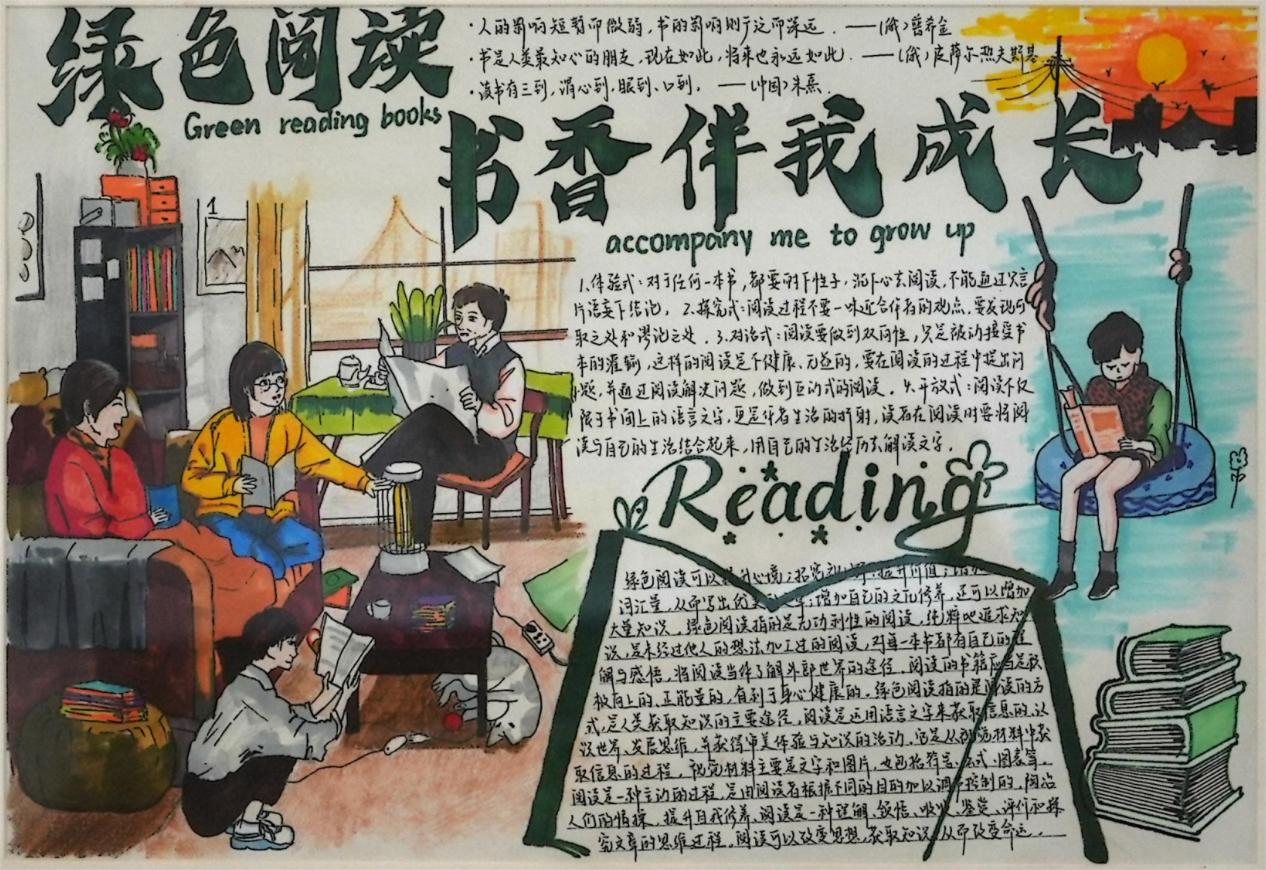 绿色阅读
Green reading books
·人的影响短暂而微弱,书的影响则广泛而深远. ——(俄)普希金
·书是人类最知心的朋友,现在如此,将来也永远如此. ——(俄)皮萨尔·热夫斯基
·读书有三到,谓心到·眼到、口到. ——(中国)朱熹.
书香伴我成长
accompany me to grow up
1
1.体验式:对于任何一本书,都要耐下性子,沉下心去阅读,不能通过只言
片语妄下结论. 2.探究式:阅读过程不要一味迎合作者的观点.要发现可
取之处和谬论之处. 3.对话式:阅读要做到双向性,只是被动接受书
本的灌输,这样的阅读是不健康、无益的,要在阅读的过程中提出问
题,并通过阅读解决问题,做到互动式的阅读. 4.开放式:阅读不仅
限于书面上的语言文字,更是作者生活的折射,读者在阅读时要将阅
读与自己的生活结合起来,用自己的生活经历去解读文字.
Reading
绿色阅读可以提升心境;拓宽 提升价值;
词汇量,从而写出优美 增加自己的文化修养,还可以增加
大量知识.绿色阅读指的是无功利性的阅读,纯粹地追求知
识,是未经过他人的想法加工过的阅读,对每一本书都有自己的理
解与感悟,将阅读当作了解外部世界的途径.阅读的书籍应当是积
极向上的、正能量的,有利于身心健康的.绿色阅读指的是阅读的方
式,是人类获取知识的主要途径,阅读是运用语言文字来获取信息的、认
识世界、发展思维,并获得审美体验与知识的活动.它是从视觉材料中获
取信息的过程.视觉材料主要是文字和图片,也包括符号、公式、图表等.
阅读是一种主动的过程,是由阅读者根据不同的目的加以调节控制的,陶冶
人们的情操,提升自我修养.阅读是一种理解、领悟、吸收、鉴赏、评价和探
究文章的思维过程.阅读可以改变思想、获取知识,从而改变命运.